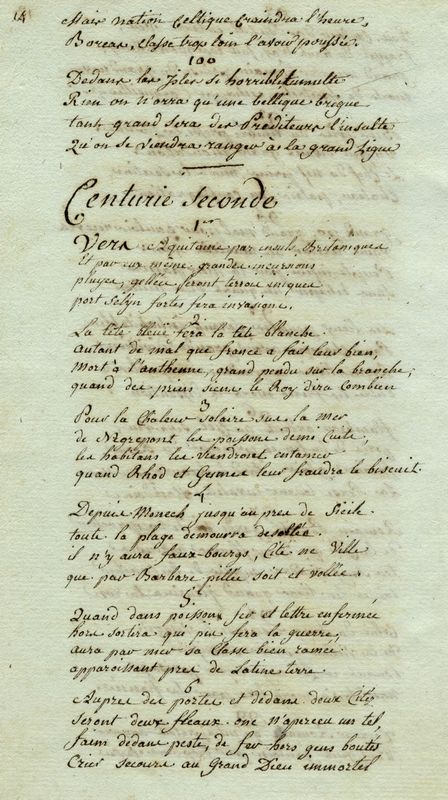 14
Mais nation Celtique Craindra l'heure,
Boreas, Classe trop loin l'avoir poussée.
100
Dedans les Isles si horrible tumulte
Rien on n'orra qu'une bellique brigue
tant grand sera des Prediteurs l'insulte
Qu'on se viendra ranger à la grand Ligue
Centurie Seconde
1er
Vers Aquitaine par insuls Britaniques
Et par eux même grandes incursions
pluyes, gellées seront terrou iniques
port Selyn fortes fera invasions.
2
La tête bleüe fera la tête blanche
autant de mal que france a fait leur bien,
mort à l'anthenne, grand pendu sur la branche,
quand des prins siens le Roy dira Combien
3
Pour la Chaleur Solaire sus la mer
de Negrepont les poissons demi Cuits,
les habitans les viendront entamer
quand Rhod et Gennes leur faudra le biscuit.
4
Depuis Monech jusqu'au pres de Sicile
toute la plage demourra desollée.
il n'y aura faux-bourgs, Cité ne Ville
que par Barbare pillée soit et vollée.
5
Quand dans poisson fer et lettre enfermée
hors sortira qui puis fera la guerre,
aura par mer sa Classe bien ramée
apparoissant pres de Latine terre.
6
Aupres des portes et dedans deux Cités
Seront deux fleaux onc n'apperceu un tel,
faim dedans peste, de fer hors gens boutés
Crier secours au Grand Dieu immortel